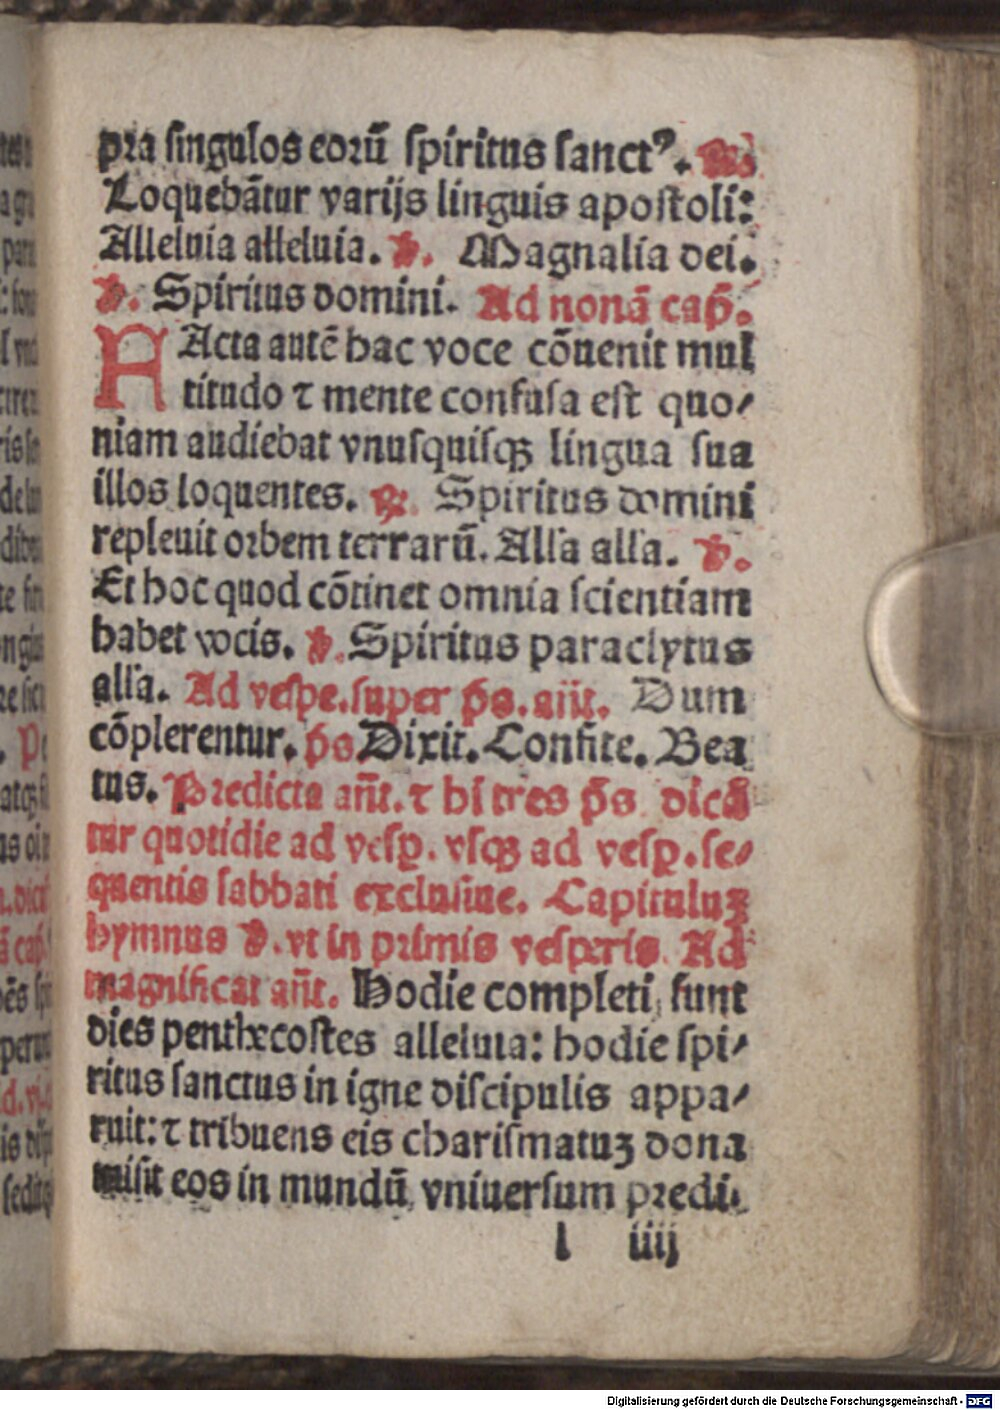 pra singulos eorū spiritus sanctꝰ. ℟.
Loquebātur varijs linguis apostoli:
Alleluia alleluia. ℣. Magnalia dei.
℣. Spiritus domini. Ad nonā cap̄.
FActa autē hac voce cōuenit mul
titudo ⁊ mente confusa est quo⸗
niam audiebat vnusquisqꝫ lingua sua
illos loquentes. ℟. Spiritus domini
repleuit orbem terrarū. Alľa alľa. ℣.
Et hoc quod cōtinet omnia scientiam
habet vocis. ℣. Spiritus paraclytus
alľa. Ad vespe. super p̄s. añt. Dum
cōplerentur. p̄s Dixit. Confite. Bea
tus. Predicta añt. ⁊ hi tres p̄s dicā
tur quotidie ad vesꝑ. vsqꝫ ad vesꝑ. se⸗
quentis sabbati exclusiue. Capituluꝫ
hymnus ℣. vt in primis vesperis. Ad
magnificat añt. Hodie completi sunt
dies penthecostes alleluia: hodie spi⸗
ritus sanctus in igne discipulis appa⸗
ruit: ⁊ tribuens eis charismatuꝫ dona
misit eos in mundū vniuersum predi.
l iiij
tes
a gr
paru
l vn
ris
. Pe
us oi
. dicā
ā cap̄.
perun
d. vj.
Digitalisierung gefördert durch die Deutsche Forschungsgemeinschaft - DFG